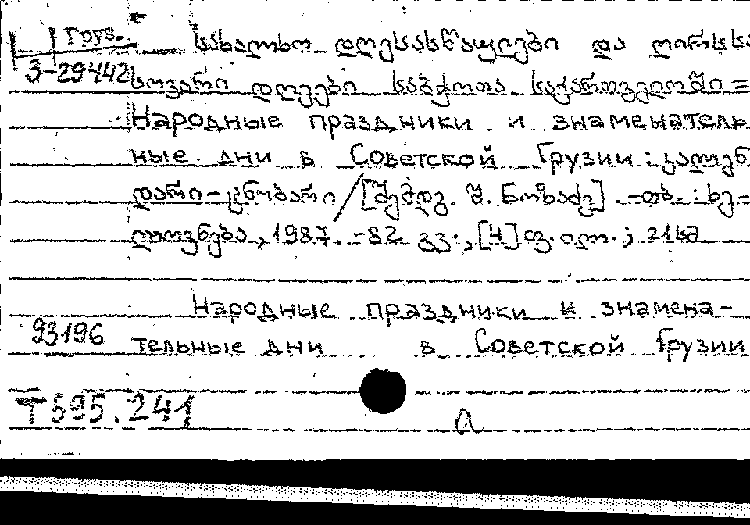 Груз.
3-29442
სახალხო დღესასწაულები და ღირსსა
ხოვარი დღეები საბჭოთა საქართველოში =
Народные праздники и знаменатель
ные дни в Советской Грузии : კალენ
დარი-ცნობარი / [შემდგ. შ. ნოზაძე]. -თბ. : ხე-
ლოვნება, 1987. -82 გვ., [4] ფ. ილ. ; 21სმ
Народные праздники и знамена-
93196
тельные дни в Советской Грузии
Т595.241
a